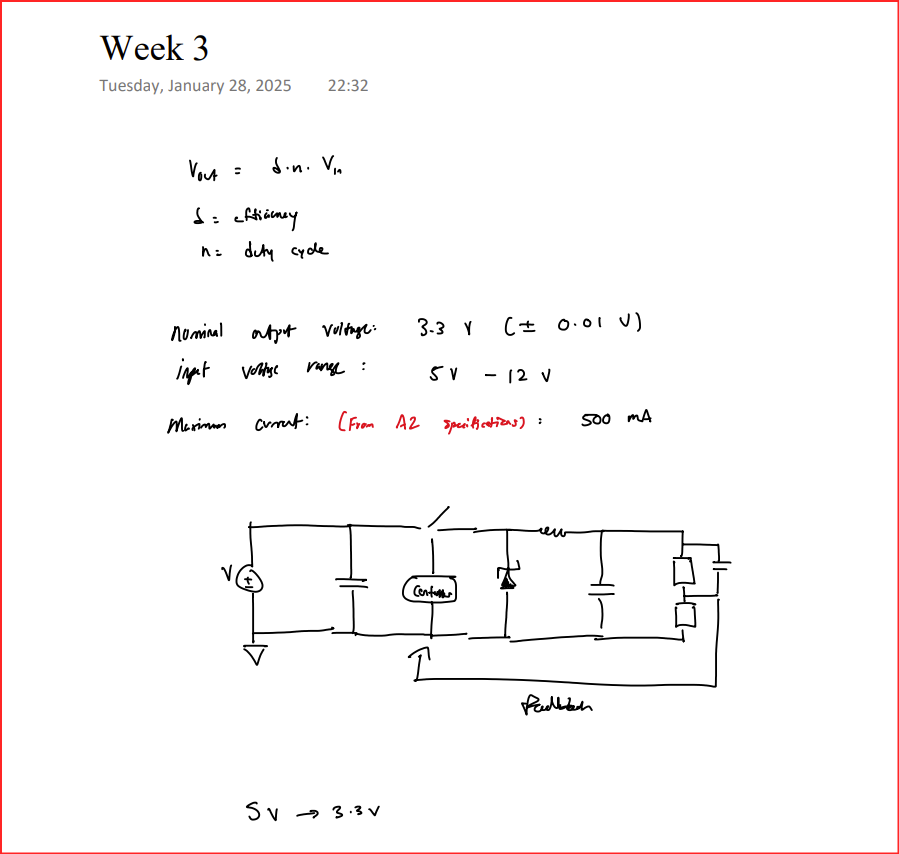 Week 3
Tuesday, January 28, 2025 22:32
Vout = δ.n. Vin
δ = efficiency
n = duty cycle
nominal output voltage: 3.3 V (± 0.01 V)
input voltage range : 5 V - 12 V
Maximum current: (From A2 specifications) : 500 mA
V
Controller
Feedback
5 V → 3.3 V